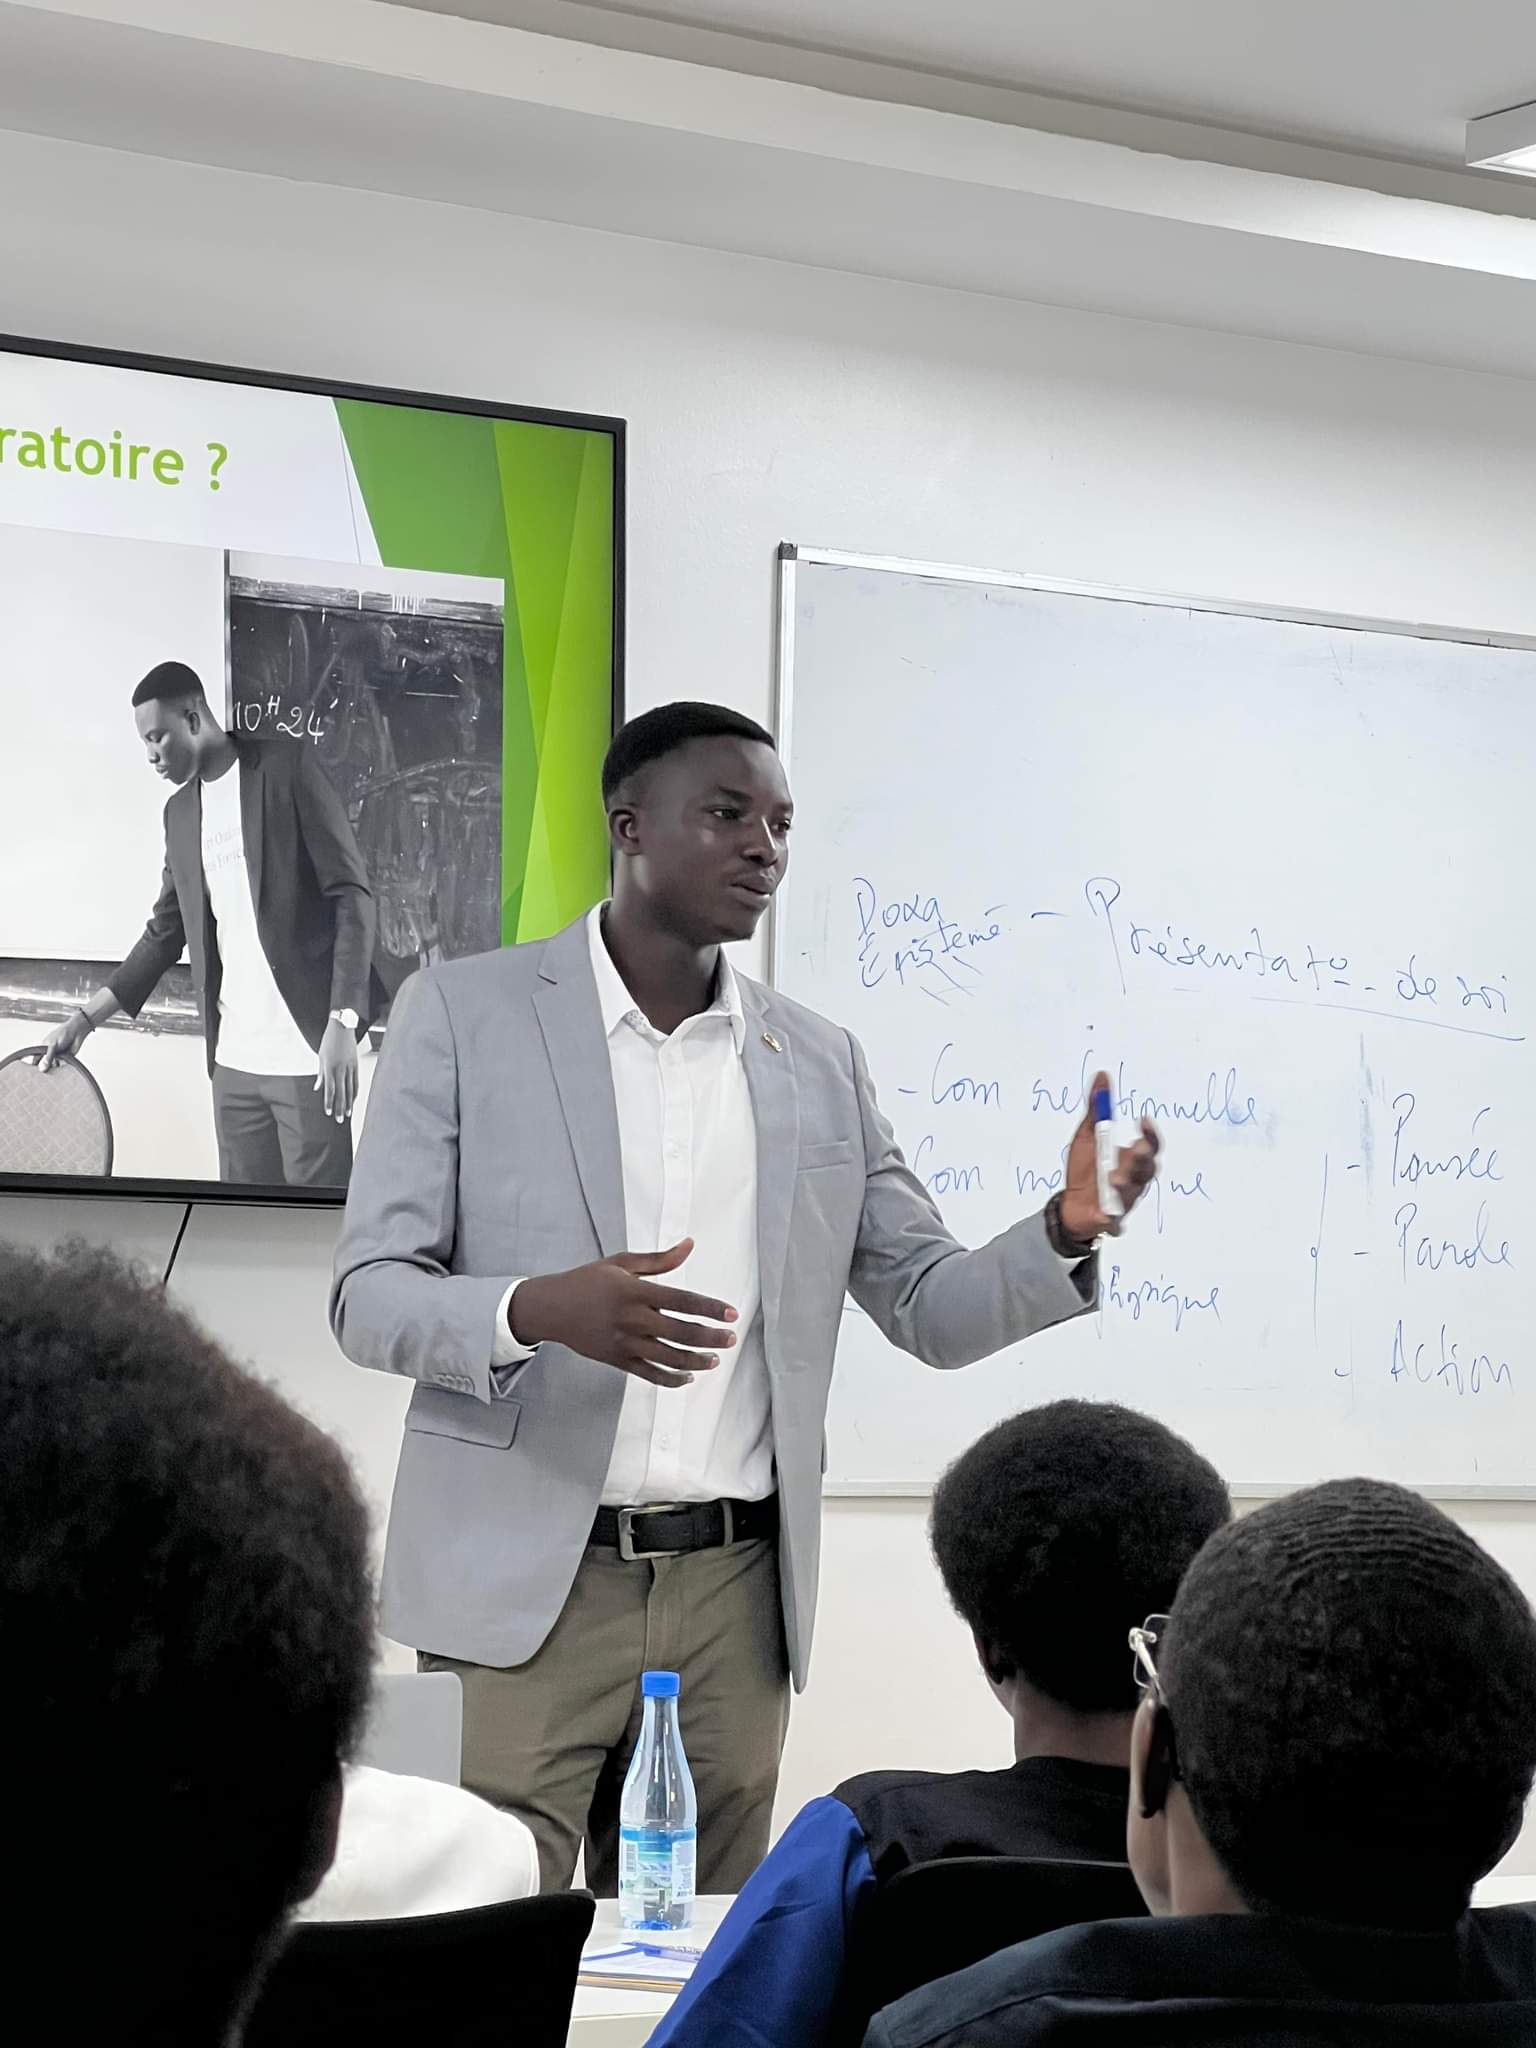 ratoire ?
10H24'
Doxa
Épistemé - Présentato de soi
- Com relationnelle
Com
physique
- Pensée
- Parole
- Action